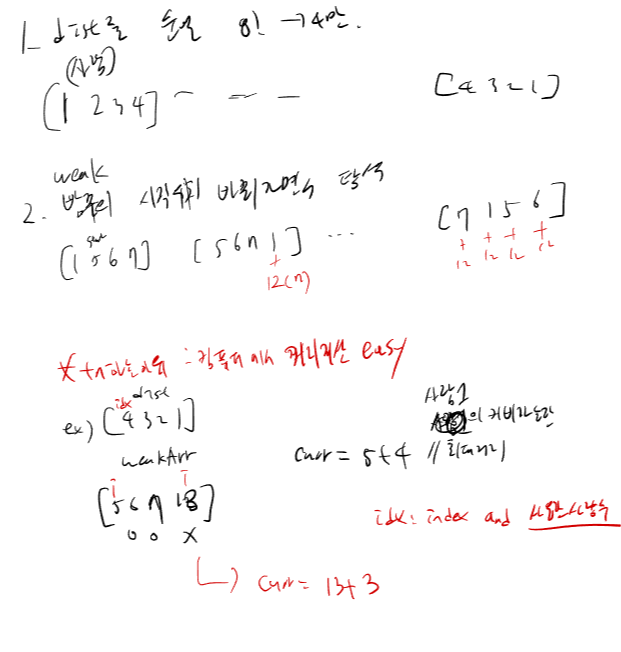 1. dist를 순열 8! → 4만.
(사람)
[1 2 3 4] ~ — — [4 3 2 1]
weak
2. 방문의 시작위치 바뀌가면서 탐색
start
[1 5 6 7] [5 6 7 1] ... [7 1 5 6]
+ + + + +
12(n) 12 12 12 12
* +n하는이유 : 점프 커버계산 easy
dist 사람1
idx
ex) [4 3 2 1] 의 커버가능한
weakArr curr = 5+4 // 최대거리
[5 6 7 13]
idx: index and 사용한사람수
o o x
↳ curr = 13+3